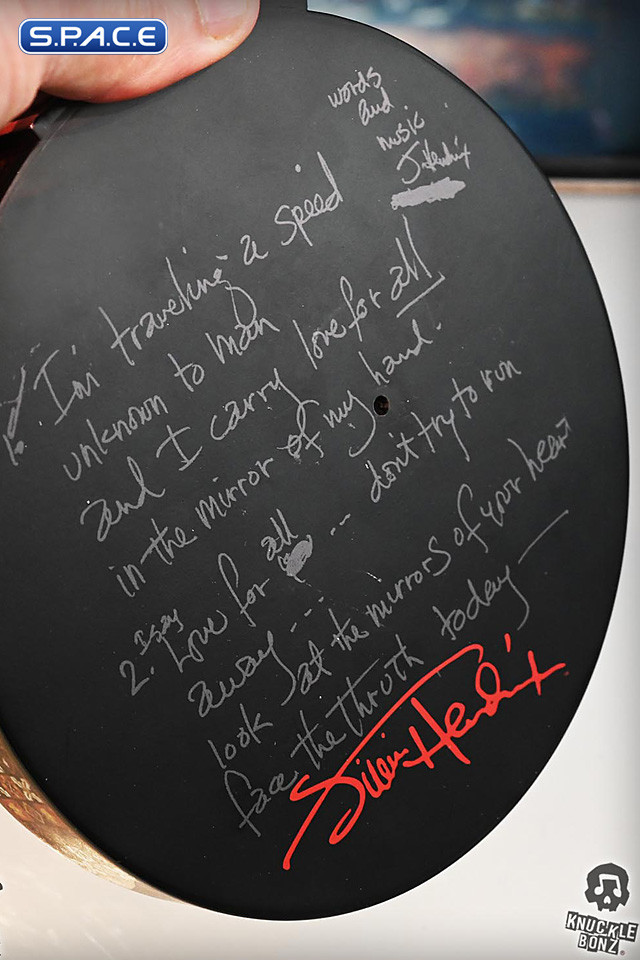 S.P.A.C.E
words
and
music
J. Hendrix
I'm traveling a speed
unknown to man
and I carry love for all
in the mirror of my hand.
2. I say Love for all --- don't try to run
away ---
look at the mirrors of your heart
face the thruth today —
Jimi Hendrix
KNUCKLE
BONZ